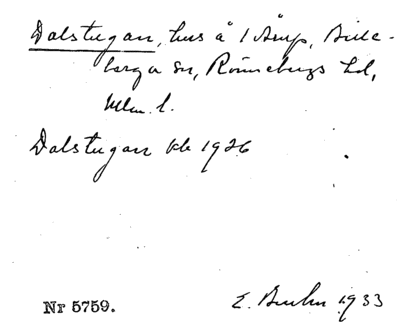 Dalstugan, hus å 1 Åmp, Bille-
berga sn, Rönnebergs hd,
Mlm. l.
Dalstugan kb 1926
Nr 5759. E. Bruhn 1933